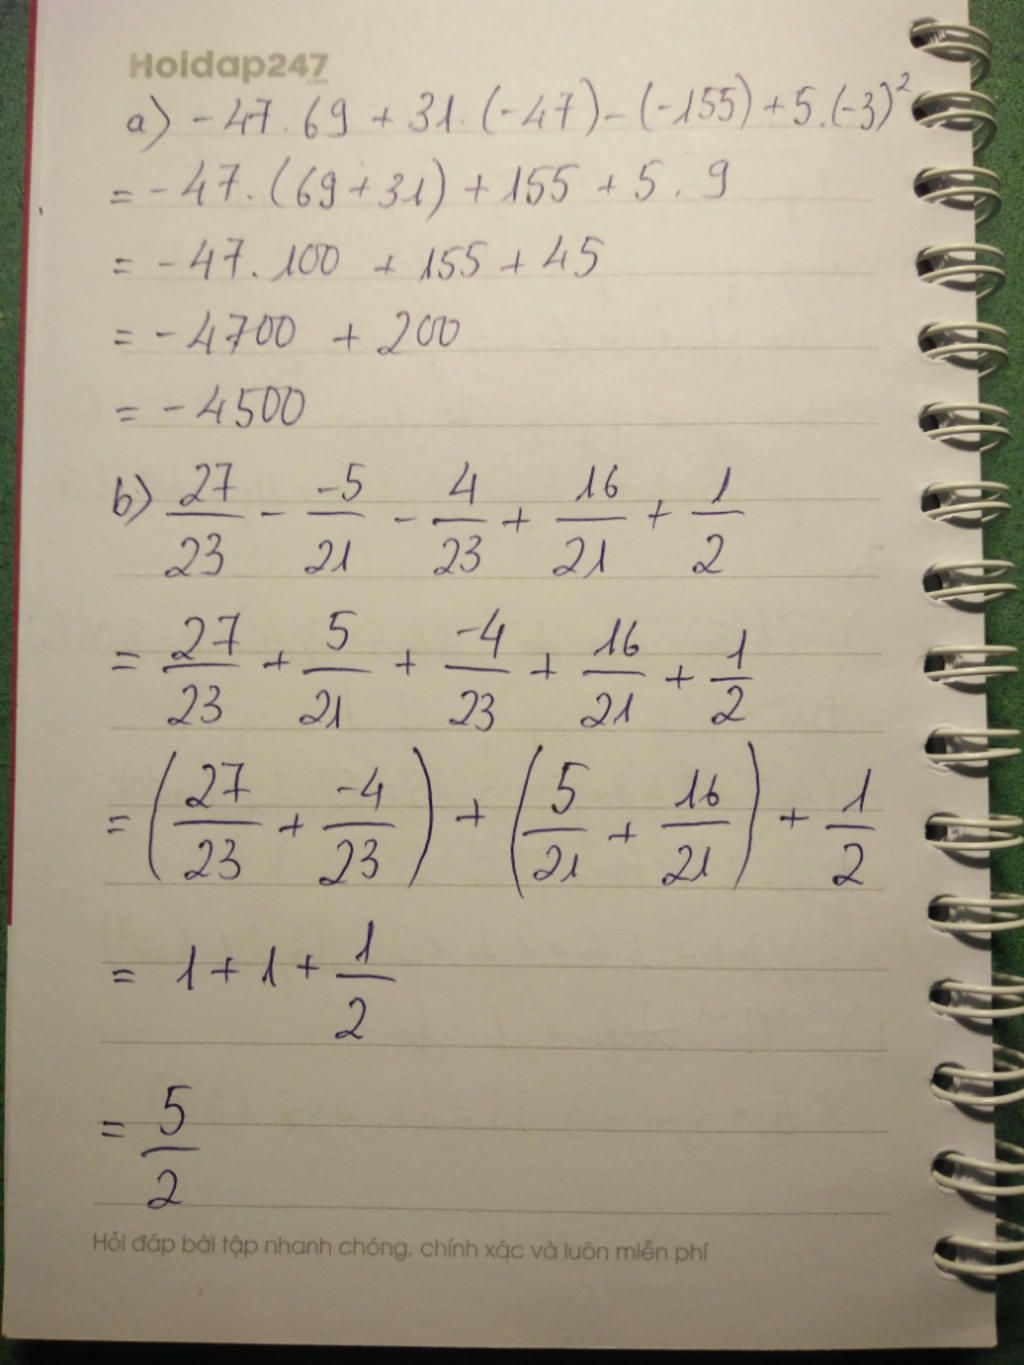 Hoidap247
.com
a) -47.69 + 31.(-47) - (-155) + 5.(-3)²
= -47.(69+31) + 155 + 5.9
= -47.100 + 155 + 45
= -4700 + 200
= -4500
b) 27/23 - -5/21 - 4/23 + 16/21 + 1/2
= 27/23 + 5/21 + -4/23 + 16/21 + 1/2
= (27/23 + -4/23) + (5/21 + 16/21) + 1/2
= 1 + 1 + 1/2
= 5/2
Hỏi đáp bài tập nhanh chóng, chính xác và luôn miễn phí